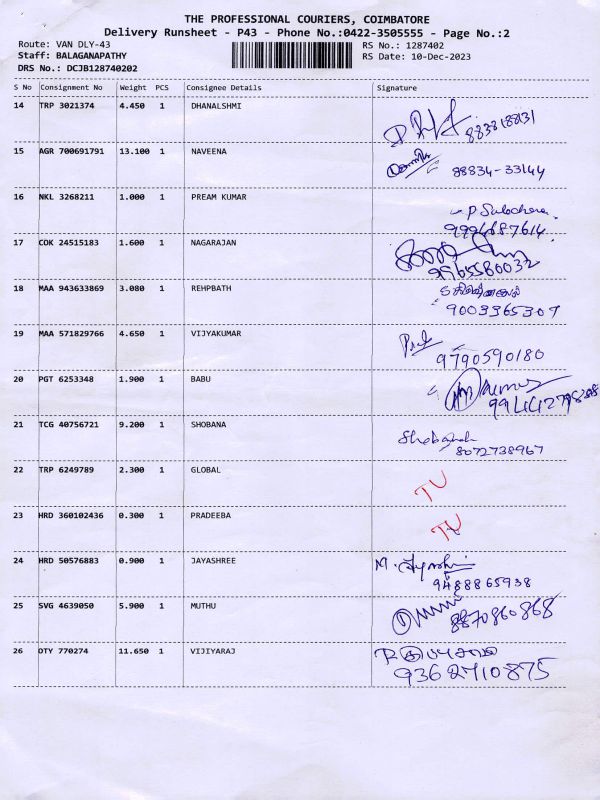 THE PROFESSIONAL COURIERS, COIMBATORE
Delivery Runsheet - P43 - Phone No.:0422-3505555 - Page No.:2
Route: VAN DLY-43 RS No.: 1287402
Staff: BALAGANAPATHY RS Date: 10-Dec-2023
DRS No.: DCJB128740202
S No Consignment No Weight PCS Consignee Details Signature
14 TRP 3021374 4.450 1 DHANALSHMI
15 AGR 700691791 13.100 1 NAVEENA
88834-33144
16 NKL 3268211 1.000 1 PREAM KUMAR
9994687614
17 COK 24515183 1.600 1 NAGARAJAN
9965580032
18 MAA 943633869 3.080 1 REHPBATH
9003365307
19 MAA 571829766 4.650 1 VIJYAKUMAR
9790590180
20 PGT 6253348 1.900 1 BABU
21 TCG 40756721 9.200 1 SHOBANA
8072738967
22 TRP 6249789 2.300 1 GLOBAL
23 HRD 360102436 0.300 1 PRADEEBA
24 HRD 50576883 0.900 1 JAYASHREE
9488865938
25 SVG 4639050 5.900 1 MUTHU
8870860868
26 OTY 770274 11.650 1 VIJIYARAJ
9362710875